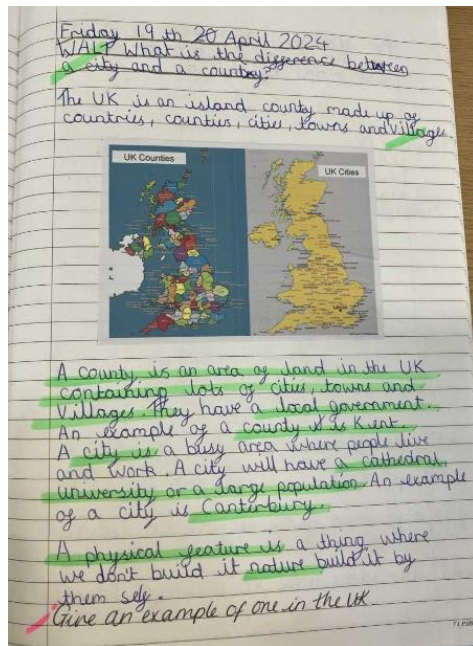 Friday 19th 20 April 2024
WALP What is the difference between
a city and a country?
The UK is an island county made up of
countries, counties, cities, towns and villages.
UK Counties
UK Cities
A county is an area of land in the UK
containing lots of cities, towns and
villages. They have a local government.
An example of a county it is Kent.
A city is a busy area where people live
and work. A city will have a cathedral,
university or a large population. An example
of a city is Canterbury.
A physical feature is a thing where
we don't build it nature build it by
them self.
Give an example of one in the UK